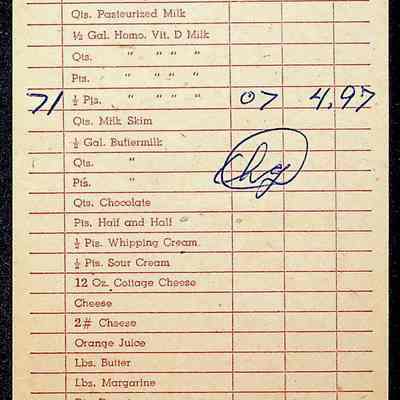 Qts. Pasteurized Milk
½ Gal. Homo. Vit. D Milk
Qts. " " " "
Pts. " " " "
71 ½ Pts. " " " " 07 4.97
Qts. Milk Skim
½ Gal. Buttermilk
Qts. "
Pts. "
Chg
Qts. Chocolate
Pts. Half and Half
½ Pts. Whipping Cream
½ Pts. Sour Cream
12 Oz. Cottage Cheese
Cheese
2# Cheese
Orange Juice
Lbs. Butter
Lbs. Margarine